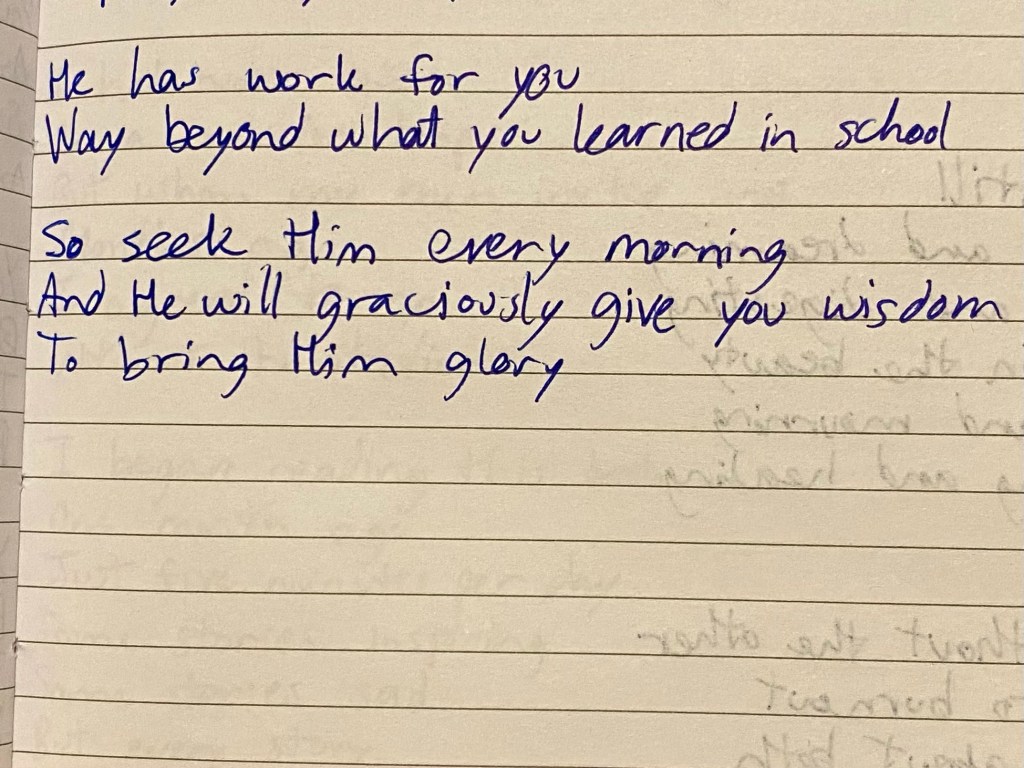 He has work for you
Way beyond what you learned in school
So seek Him every morning
And He will graciously give you wisdom
To bring Him glory